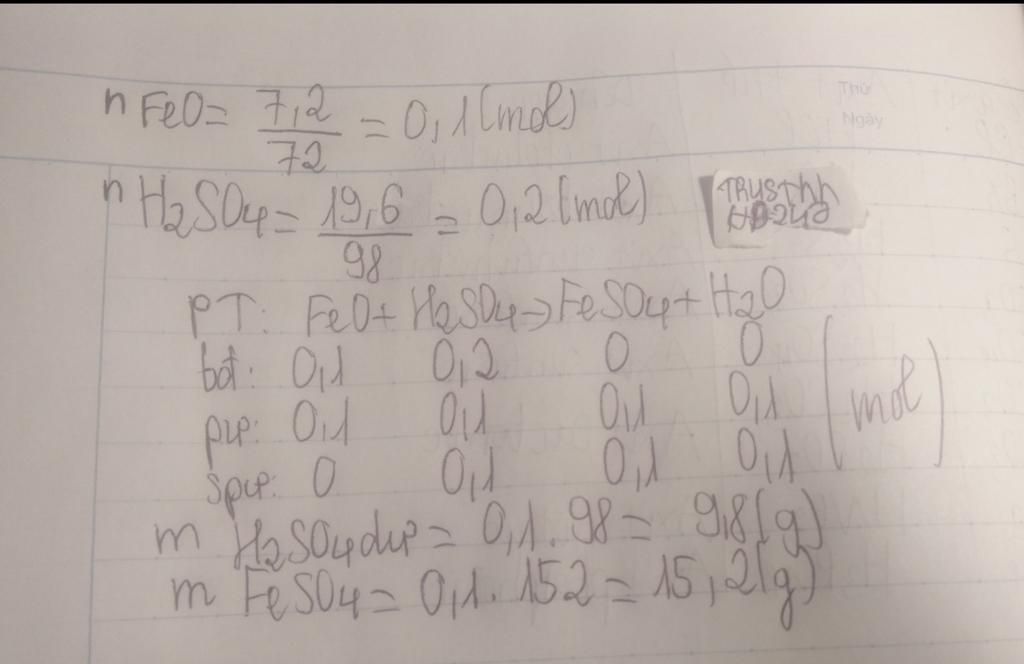 Thứ
Ngày
n FeO = 7,2/72 = 0,1 (mol)
n H2SO4 = 19,6/98 = 0,2 (mol)
TRUSThh
PT: FeO + H2SO4 → FeSO4 + H2O
bđ: 0,1 0,2 0 0
pư: 0,1 0,1 0,1 0,1 (mol)
spư: 0 0,1 0,1 0,1
m H2SO4 dư = 0,1 . 98 = 9,8 (g)
m FeSO4 = 0,1 . 152 = 15,2 (g)